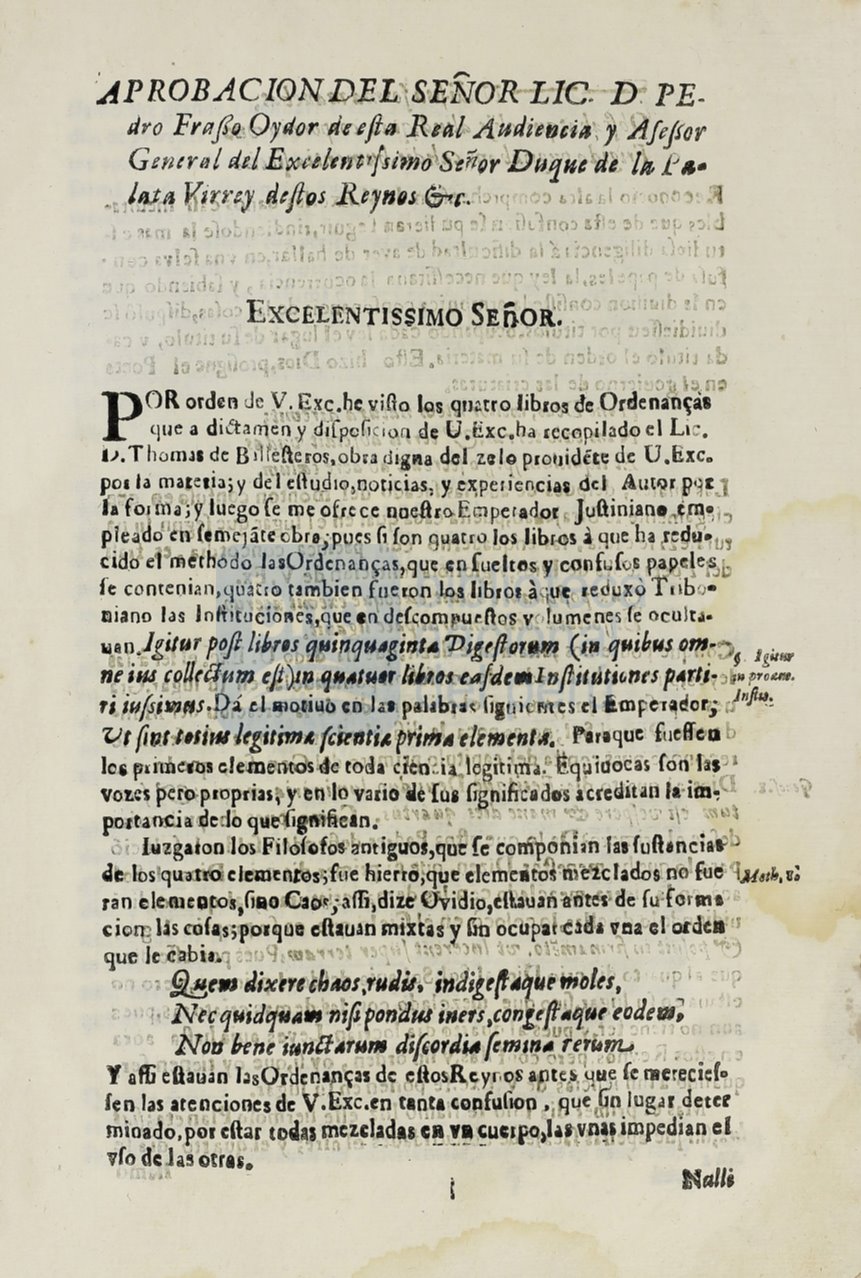 APROBACION DEL SEÑOR LIC. D PE-
dro Fraſſo Oydor de eſta Real Audiencia y Aſeſſor
General del Excelentiſsimo Señor Duque de la Pa-
lata Virrey deſtos Reynos &c.
EXCELENTISSIMO SEñOR.
POR orden de V. Exc. he viſto los quatro libros de Ordenanças
que a dictamen y diſpoſicion de U. Exc. ha recopilado el Lic.
D. Thomas de Balleſteros, obra digna del zelo prouidēte de U. Exc.
por la materia; y del eſtudio, noticias, y experiencias del Autor por
la forma; y luego ſe me ofrece nueſtro Emperador Juſtiniano em-
pleado en ſemejāte obra; pues ſi ſon quatro los libros à que ha redu-
cido el methodo las Ordenanças, que en ſueltos y confuſos papeles
ſe contenian, quatro tambien fueron los libros à que reduxò Tribo-
niano las Inſtituciones, que en deſcompueſtos volumenes ſe oculta-
uan. Igitur poſt libros quinquaginta Digeſtorum (in quibus om-
ne ius collectum eſt) in quatuor libros eaſdem Inſtitutiones parti-
ri iuſsimus. Dà el motiuo en las palabras ſiguientes el Emperador;
§ Igitur
in proæm.
Inſtit.
Vt ſint totius legitima ſcientia prima elementa. Paraque fueſſen
los primeros elementos de toda ciencia legitima. Equiuocas ſon las
vozes pero proprias, y en lo vario de ſus ſignificados acreditan la im-
portancia de lo que ſignifican.
Iuzgaron los Filoſofos antiguos, que ſe componian las ſuſtancias
de los quatro elementos; fue hierro, que elementos mezclados no fue
ran elementos, ſino Caos; aſſi, dize Ovidio, eſtauan antes de ſu forma
cion las coſas; porque eſtauan mixtas y ſin ocupar cada vna el orden
que le cabia.
Quem dixere chaos, rudis, indigeſtaque moles,
Nec quidquam niſi pondus iners, congeſtaque eodem,
Non bene iunctarum diſcordia ſemina rerum.
Y aſſi eſtauan las Ordenanças de eſtos Reynos antes que ſe merecieſ-
ſen las atenciones de V. Exc. en tanta confuſion, que ſin lugar deter
minado, por eſtar todas mezcladas en vn cuerpo, las vnas impedian el
vſo de las otras.
Nulli